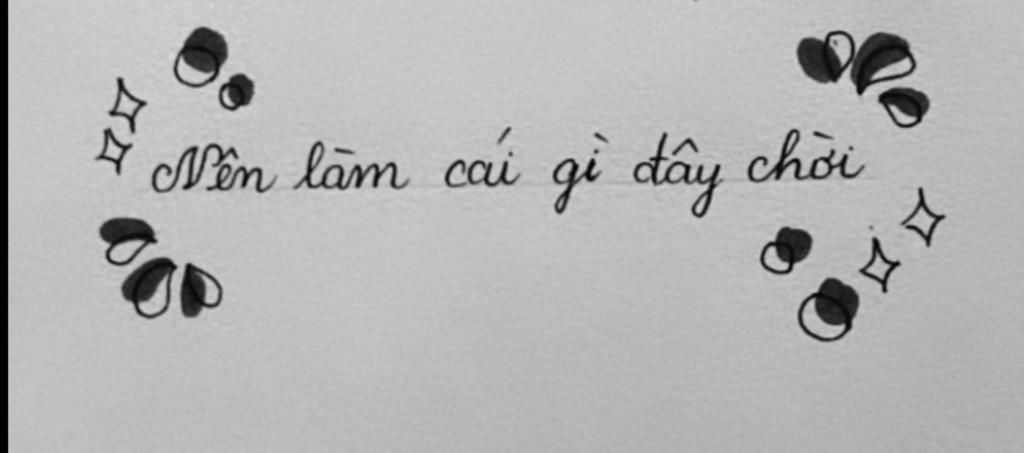 Nên làm cái gì đây chời